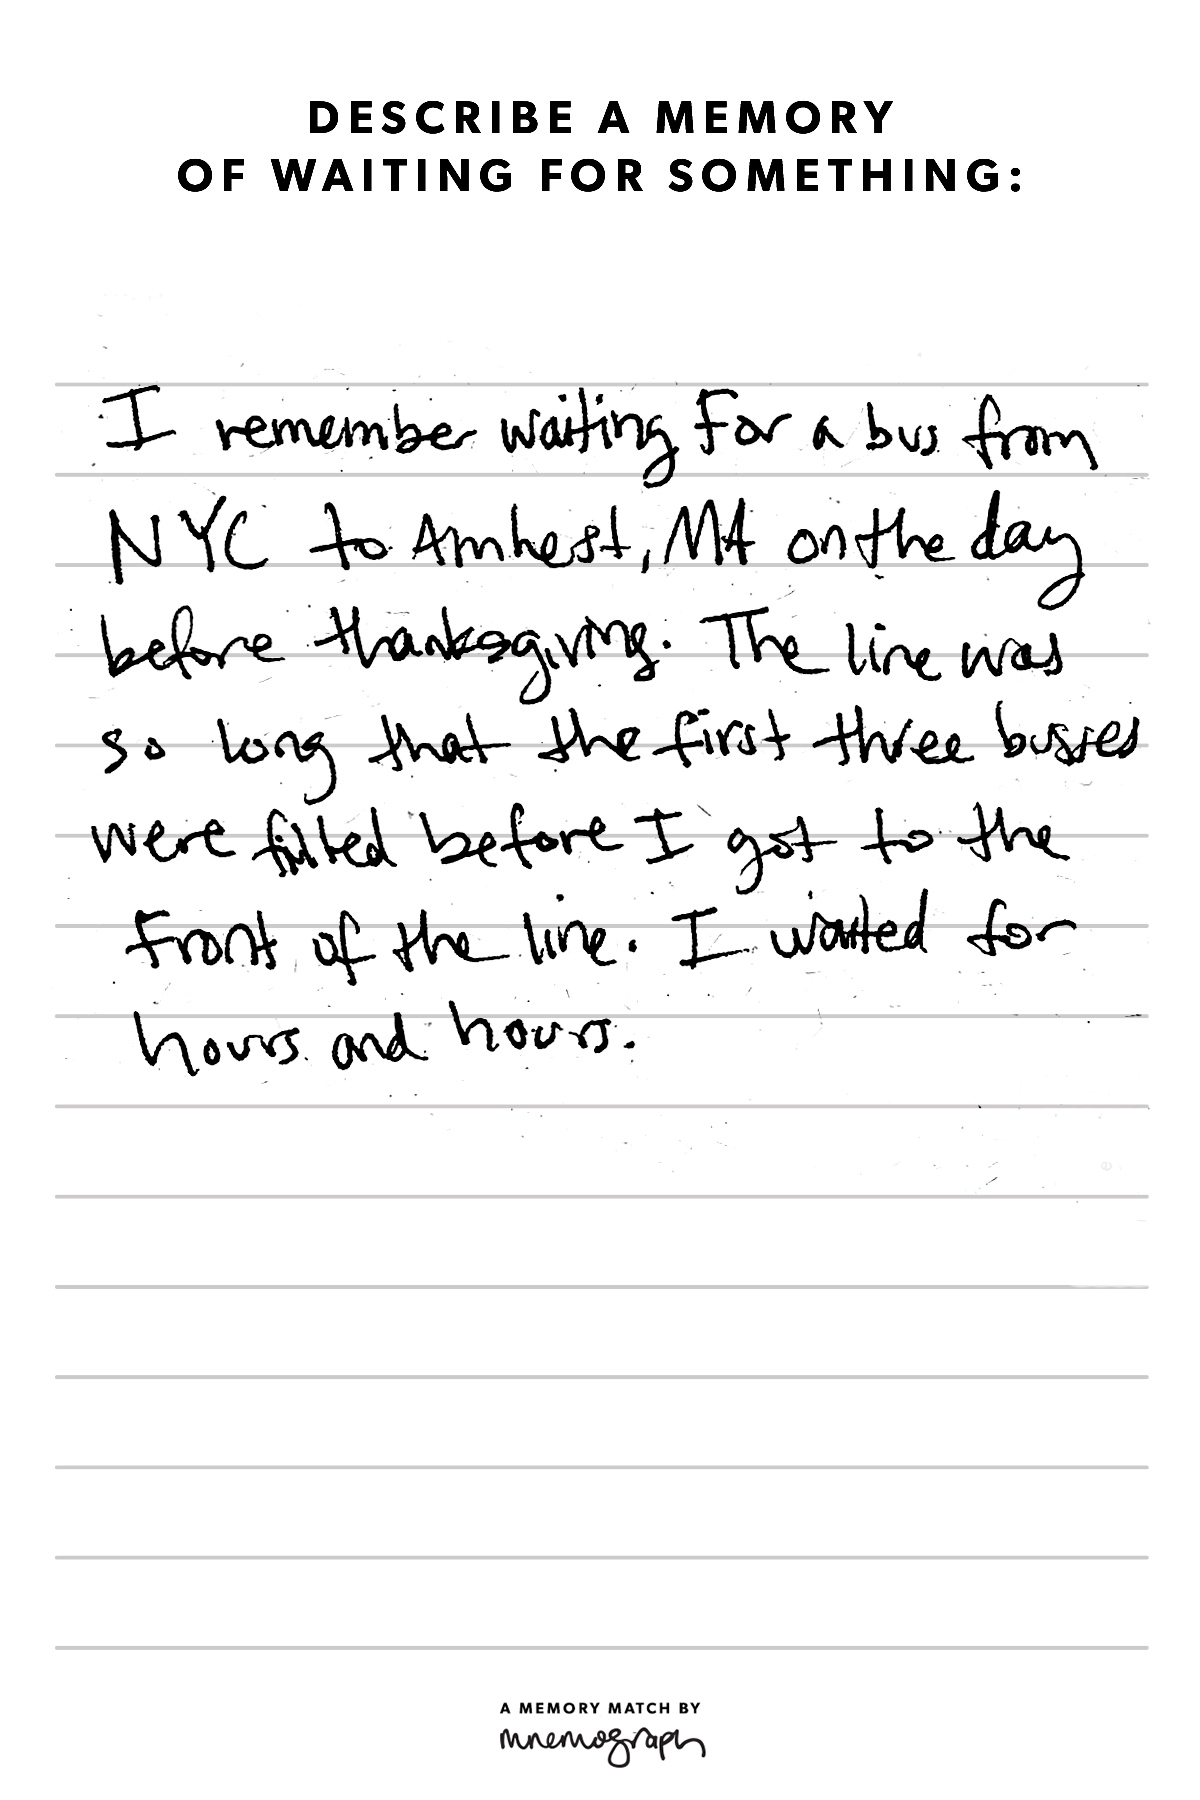 DESCRIBE A MEMORY
OF WAITING FOR SOMETHING:
I remember waiting for a bus from
NYC to Amhest, MA on the day
before thanksgiving. The line was
so long that the first three busses
were filled before I got to the
front of the line. I waited for
hours and hours.
A MEMORY MATCH BY
mnemograph